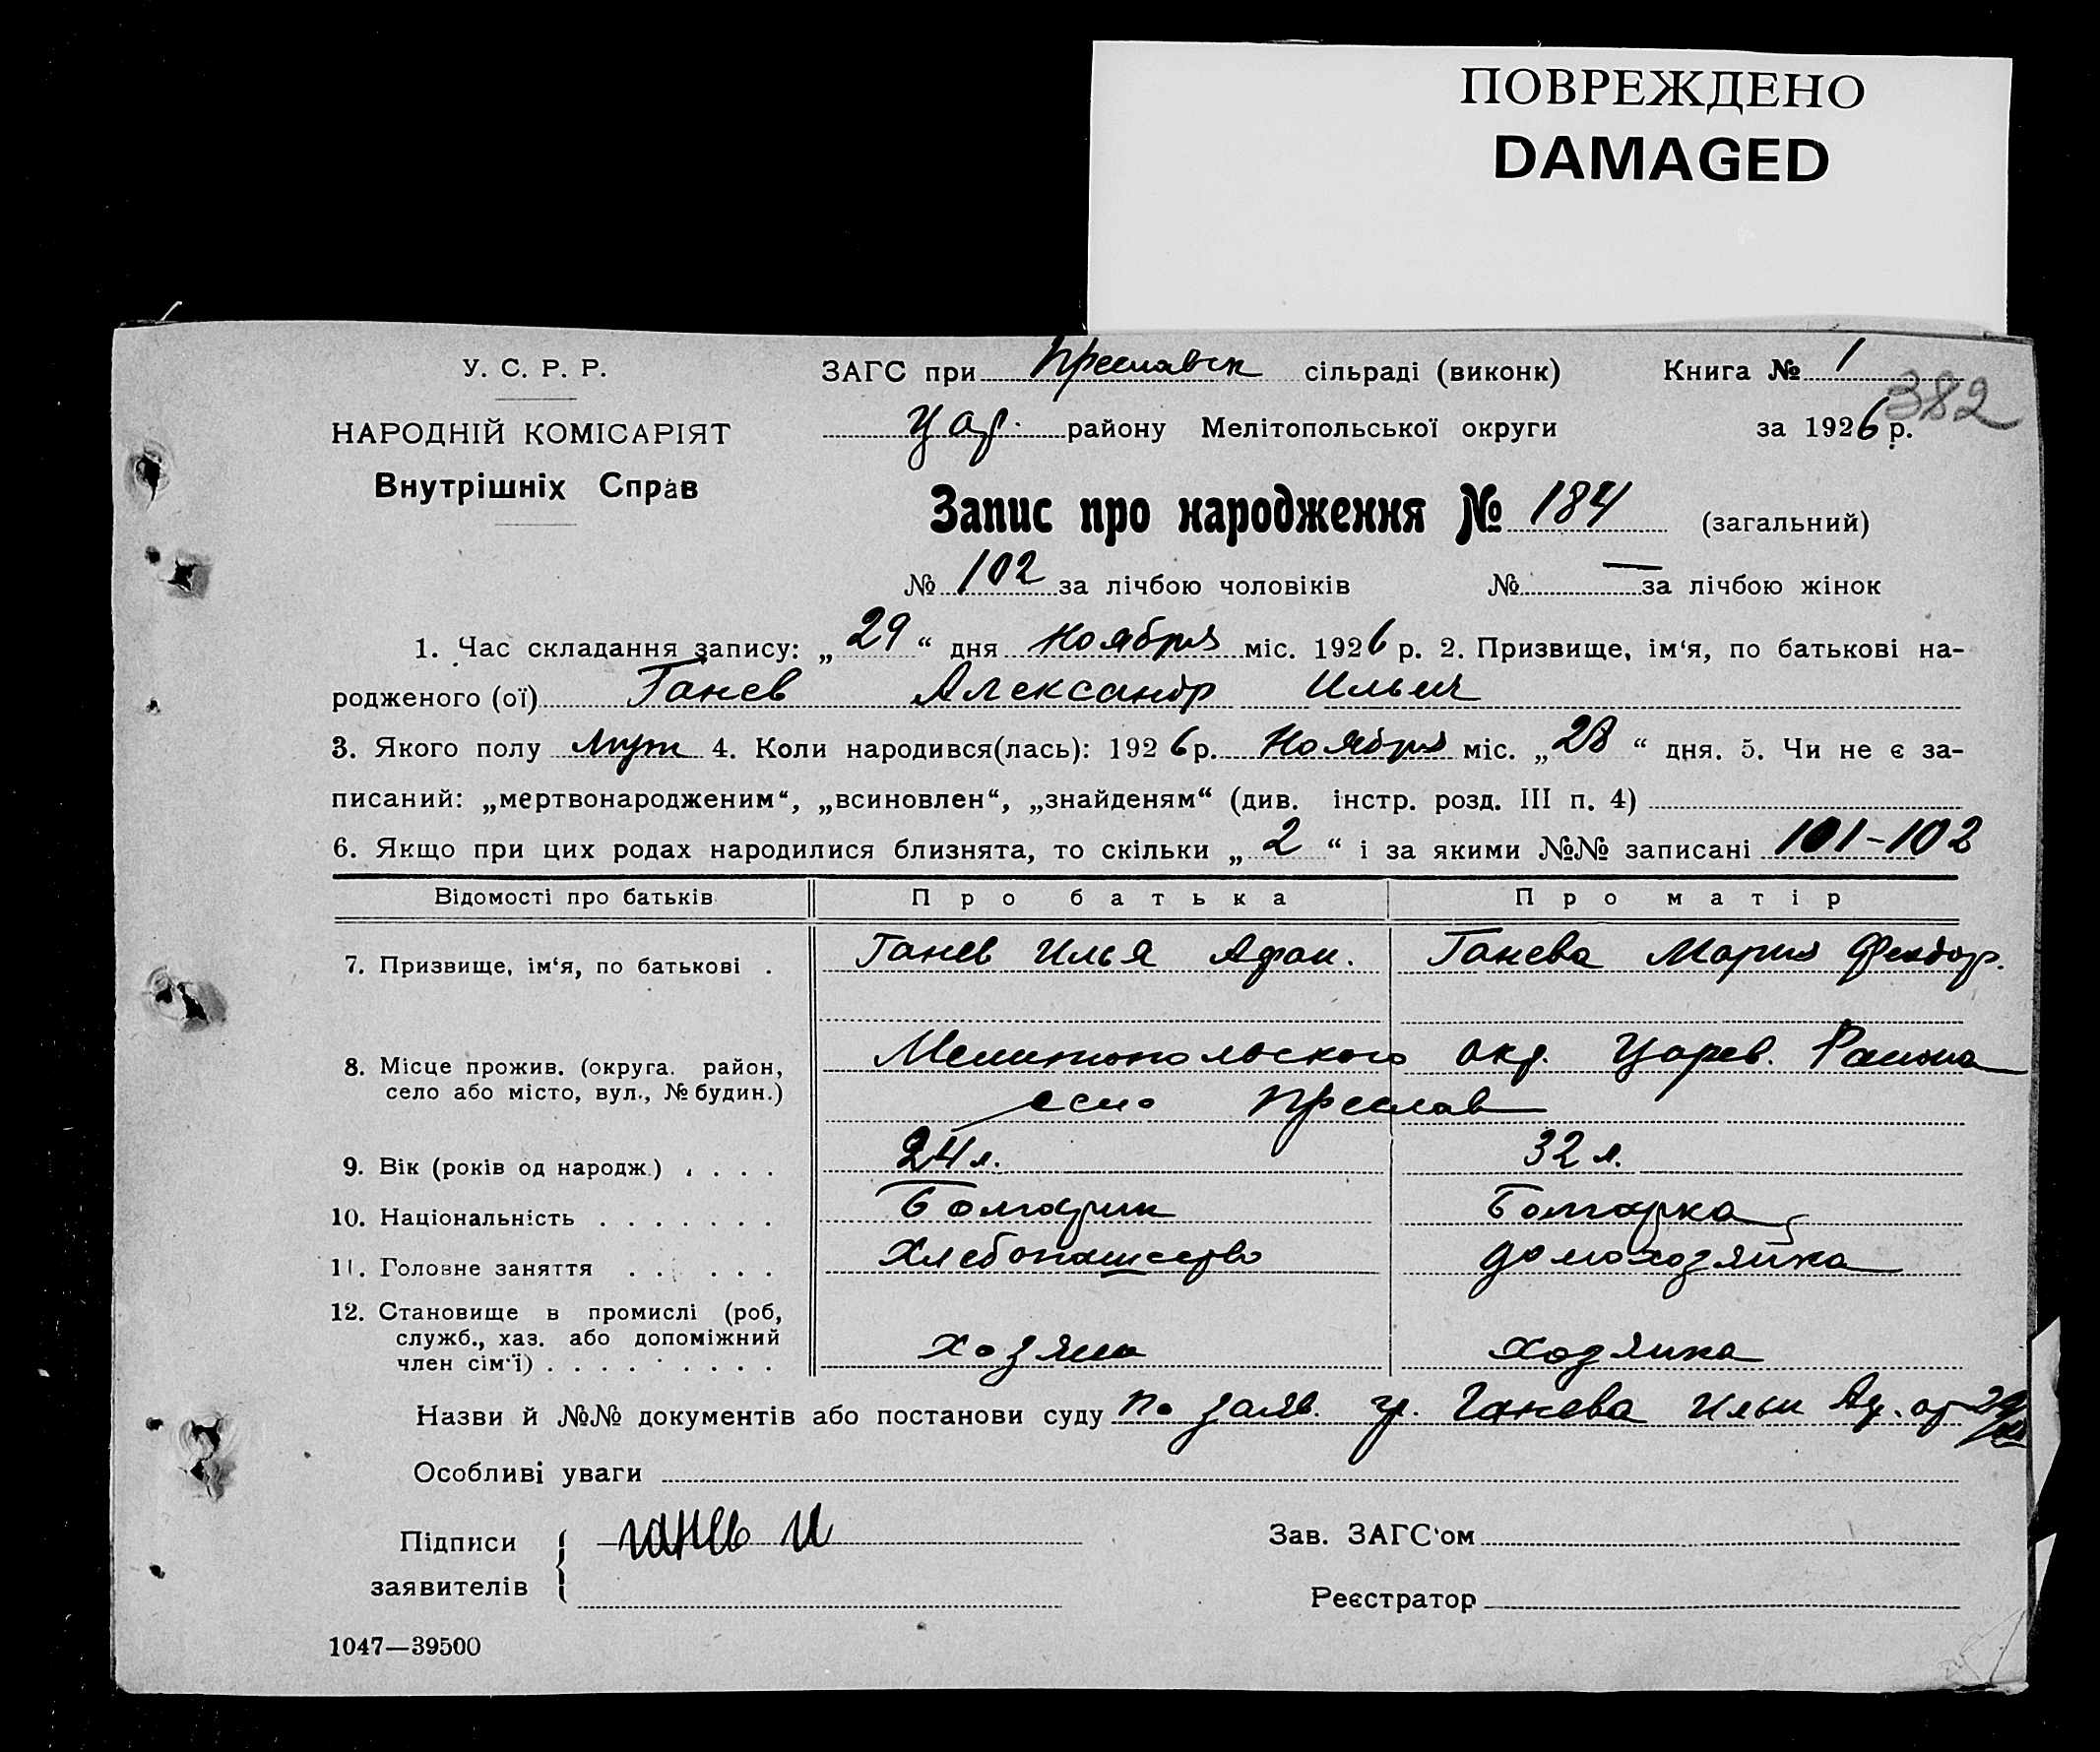 ПОВРЕЖДЕНО
DAMAGED
У. С. Р. Р.
НАРОДНІЙ КОМІСАРІЯТ
Внутрішніх Справ
ЗАГС при Преславск сільраді (виконк) Книга № 1
382
Цар. району Мелітопольської округи за 1926 р.
Запис про народження № 184 (загальний)
№ 102 за лічбою чоловіків № — за лічбою жінок
1. Час складання запису: „29“ дня Ноября міс. 1926 р. 2. Призвище, ім‘я, по батькові на-
родженого (ої) Ганев Александр Ильич
3. Якого полу муж 4. Коли народився(лась): 1926 р. Ноября міс. „28“ дня. 5. Чи не є за-
писаний: „мертвонародженим“, „всиновлен“, „знайденям“ (див. інстр. розд. III п. 4)
6. Якщо при цих родах народилися близнята, то скільки „2“ і за якими №№ записані 101-102
Відомості про батьків Про батька Про матір
7. Призвище, ім‘я, по батькові . Ганев Илья Афан. Ганева Мария Феодор.
8. Місце прожив. (округа. район, село або місто, вул., № будин.) Мелитопольского окр. Царев. Района
село Преслав
9. Вік (років од народж.) . . . . 24 л. 32 л.
10. Національність . . . . . . . Болгарин Болгарка
11. Головне заняття . . . . . . Хлебопашество домохозяйка
12. Становище в промислі (роб,
служб., хаз. або допоміжний
член сім‘ї) . . . . . . . . . хозяин хозяйка
Назви й №№ документів або постанови суду по заяв. гр. Ганева Ильи Аф. от 29/XI
Особливі уваги
Підписи
заявителів
Ганев И
Зав. ЗАГС‘ом
Реєстратор
1047—39500